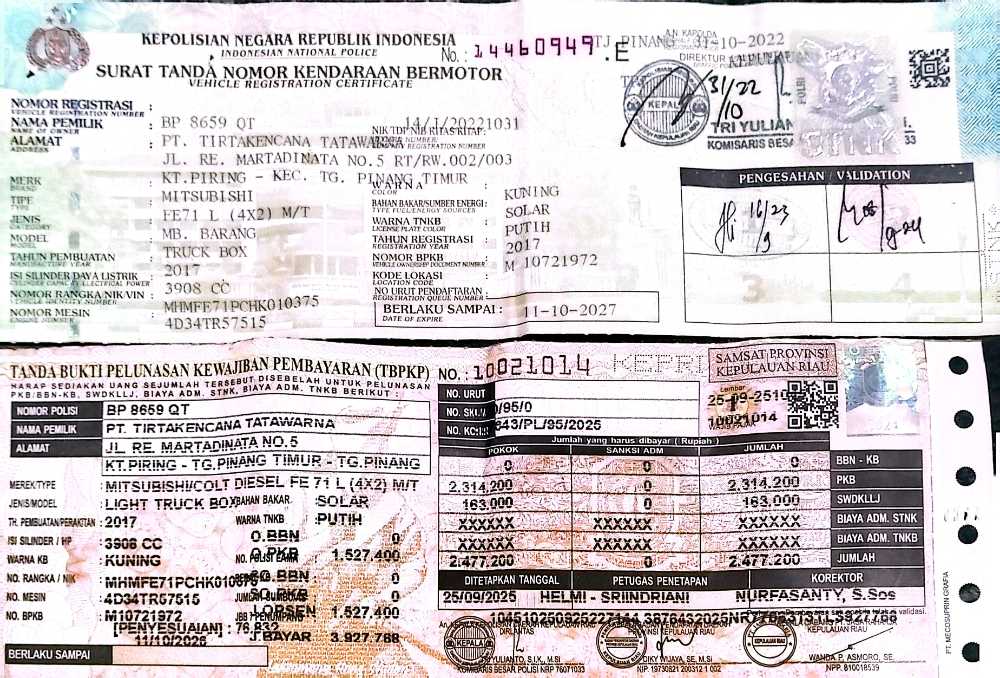 KEPOLISIAN NEGARA REPUBLIK INDONESIA
INDONESIAN NATIONAL POLICE
SURAT TANDA NOMOR KENDARAAN BERMOTOR
VEHICLE REGISTRATION CERTIFICATE
No.: 14460949 .E
TJ PINANG 31-10-2022
AN KAPOLDA
DIREKTUR
31/22
10
KEPALA
TRI YULIAN
KOMISARIS BESA
NOMOR REGISTRASI : BP 8659 QT 14/1/20221031
VEHICLE REGISTRATION NUMBER
NAMA PEMILIK : PT. TIRTAKENCANA TATAWARNA
NAME OF OWNER
NIK/TDP/NIB/KITAS/KITAP:
ALAMAT : JL. RE. MARTADINATA NO.5 RT/RW.002/003
ADDRESS
KT.PIRING - KEC. TG. PINANG TIMUR
MERK : MITSUBISHI
BRAND
TIPE : FE71 L (4X2) M/T
TYPE
JENIS : MB. BARANG
CATEGORY
MODEL : TRUCK BOX
MODEL
TAHUN PEMBUATAN : 2017
MANUFACTURE YEAR
ISI SILINDER/DAYA LISTRIK : 3908 CC
CYLINDER CAPACITY/ELECTRICAL POWER
NOMOR RANGKA/NIK/VIN : MHMFE71PCHK010375
VEHICLE IDENTITY NUMBER
NOMOR MESIN : 4D34TR57515
ENGINE NUMBER
WARNA : KUNING
COLOR
BAHAN BAKAR/SUMBER ENERGI : SOLAR
TYPE FUEL/ENERGY SOURCES
WARNA TNKB : PUTIH
LICENSE PLATE COLOR
TAHUN REGISTRASI : 2017
REGISTRATION YEAR
NOMOR BPKB : M 10721972
VEHICLE OWNERSHIP DOCUMENT NUMBER
KODE LOKASI :
LOCATION CODE
NO URUT PENDAFTARAN :
REGISTRATION QUEUE NUMBER
BERLAKU SAMPAI : 11-10-2027
DATE OF EXPIRE
PENGESAHAN / VALIDATION
16/23
9
3
4
TANDA BUKTI PELUNASAN KEWAJIBAN PEMBAYARAN (TBPKP) NO.: 10021014 KEPRI
HARAP SEDIAKAN UANG SEJUMLAH TERSEBUT DISEBELAH UNTUK PELUNASAN
PKB/BBN-KB, SWDKLLJ, BIAYA ADM. STNK, BIAYA ADM. TNKB BERIKUT :
SAMSAT PROVINSI
KEPULAUAN RIAU
Lembar
1
25-09-2510
10021014
NOMOR POLISI BP 8659 QT
NAMA PEMILIK PT. TIRTAKENCANA TATAWARNA
ALAMAT JL. RE. MARTADINATA NO.5
KT.PIRING - TG.PINANG TIMUR - TG.PINANG
MEREK/TYPE : MITSUBISHI/COLT DIESEL FE 71 L (4X2) M/T
JENIS/MODEL : LIGHT TRUCK BOX BAHAN BAKAR : SOLAR
TH. PEMBUATAN/PERAKITAN : 2017 WARNA TNKB : PUTIH
ISI SILINDER / HP : 3908 CC O.BBN 0
WARNA KB : KUNING NO. POLISI LAMA O.PKB 1.527.400
NO. RANGKA / NIK : MHMFE71PCHK010375 SO.BBN 0
NO. MESIN : 4D34TR57515 SO.PKB 0
NO. BPKB : M10721972 LOPSEN 1.527.400
[PENYESUAIAN] : 76.833
11/10/2026 J.BAYAR 3.927.788
BERLAKU SAMPAI
NO. URUT
NO. SKUM /95/0
NO. KOHIR 643/PL/95/2025
Jumlah yang harus dibayar ( Rupiah )
POKOK SANKSI ADM JUMLAH
0 0 0 BBN - KB
2.314.200 0 2.314.200 PKB
163.000 0 163.000 SWDKLLJ
XXXXXX XXXXXX XXXXXX BIAYA ADM. STNK
XXXXXX XXXXXX XXXXXX BIAYA ADM. TNKB
2.477.200 0 2.477.200 JUMLAH
DITETAPKAN TANGGAL PETUGAS PENETAPAN KOREKTOR
25/09/2025 HELMI - SRIINDRIANI NURFASANTY, S.Sos
DIRLANTAS
KEPULAUAN RIAU
KOMISARIS BESAR POLISI NRP 76071033
DIKY WIJAYA, SE, M.Si
NIP. 19730821 200312 1 002
WANDA P. ASMORO, SE.
NPP. 810018539
PT. MEGOSUPRIN GRAFIA